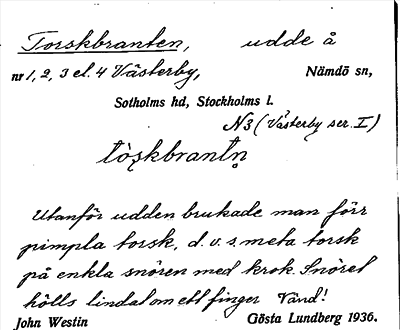 Torskbranten, udde å
nr 1, 2, 3 el. 4 Västerby, Nämdö sn,
Sotholms hd, Stockholms l.
N3 (Västerby ser. I)
tòʂkbrantn̥
Utanför udden brukade man förr
pimpla torsk, d. v. s. meta torsk
på enkla snören med krok. Snöret
hölls lindat om ett finger Vänd!
John Westin Gösta Lundberg 1936.